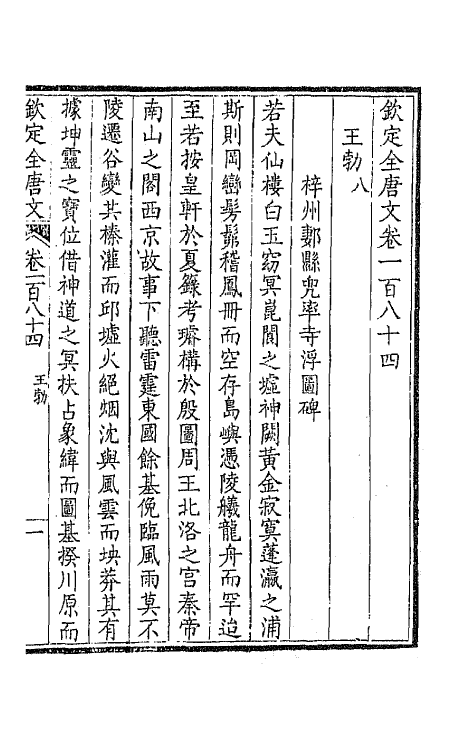 欽定全唐文卷一百八十四
王勃八
梓州郪縣兜率寺浮圖碑
若夫仙樓白玉窈冥崑閬之墟神闕黃金寂寞蓬瀛之浦
斯則岡巒髣髴稽鳳冊而空存島嶼憑陵艤龍舟而罕迨
至若按皇軒於夏籙考璿構於殷圖周王北洛之宮秦帝
南山之閣西京故事下聽雷霆東國餘基俛臨風雨莫不
陵遷谷變其榛灌而邱墟火絕烟沈與風雲而坱莽其有
據坤靈之寶位借神道之冥扶占象緯而圖基揆川原而
欽定全唐文
卷一百八十四
王勃
一